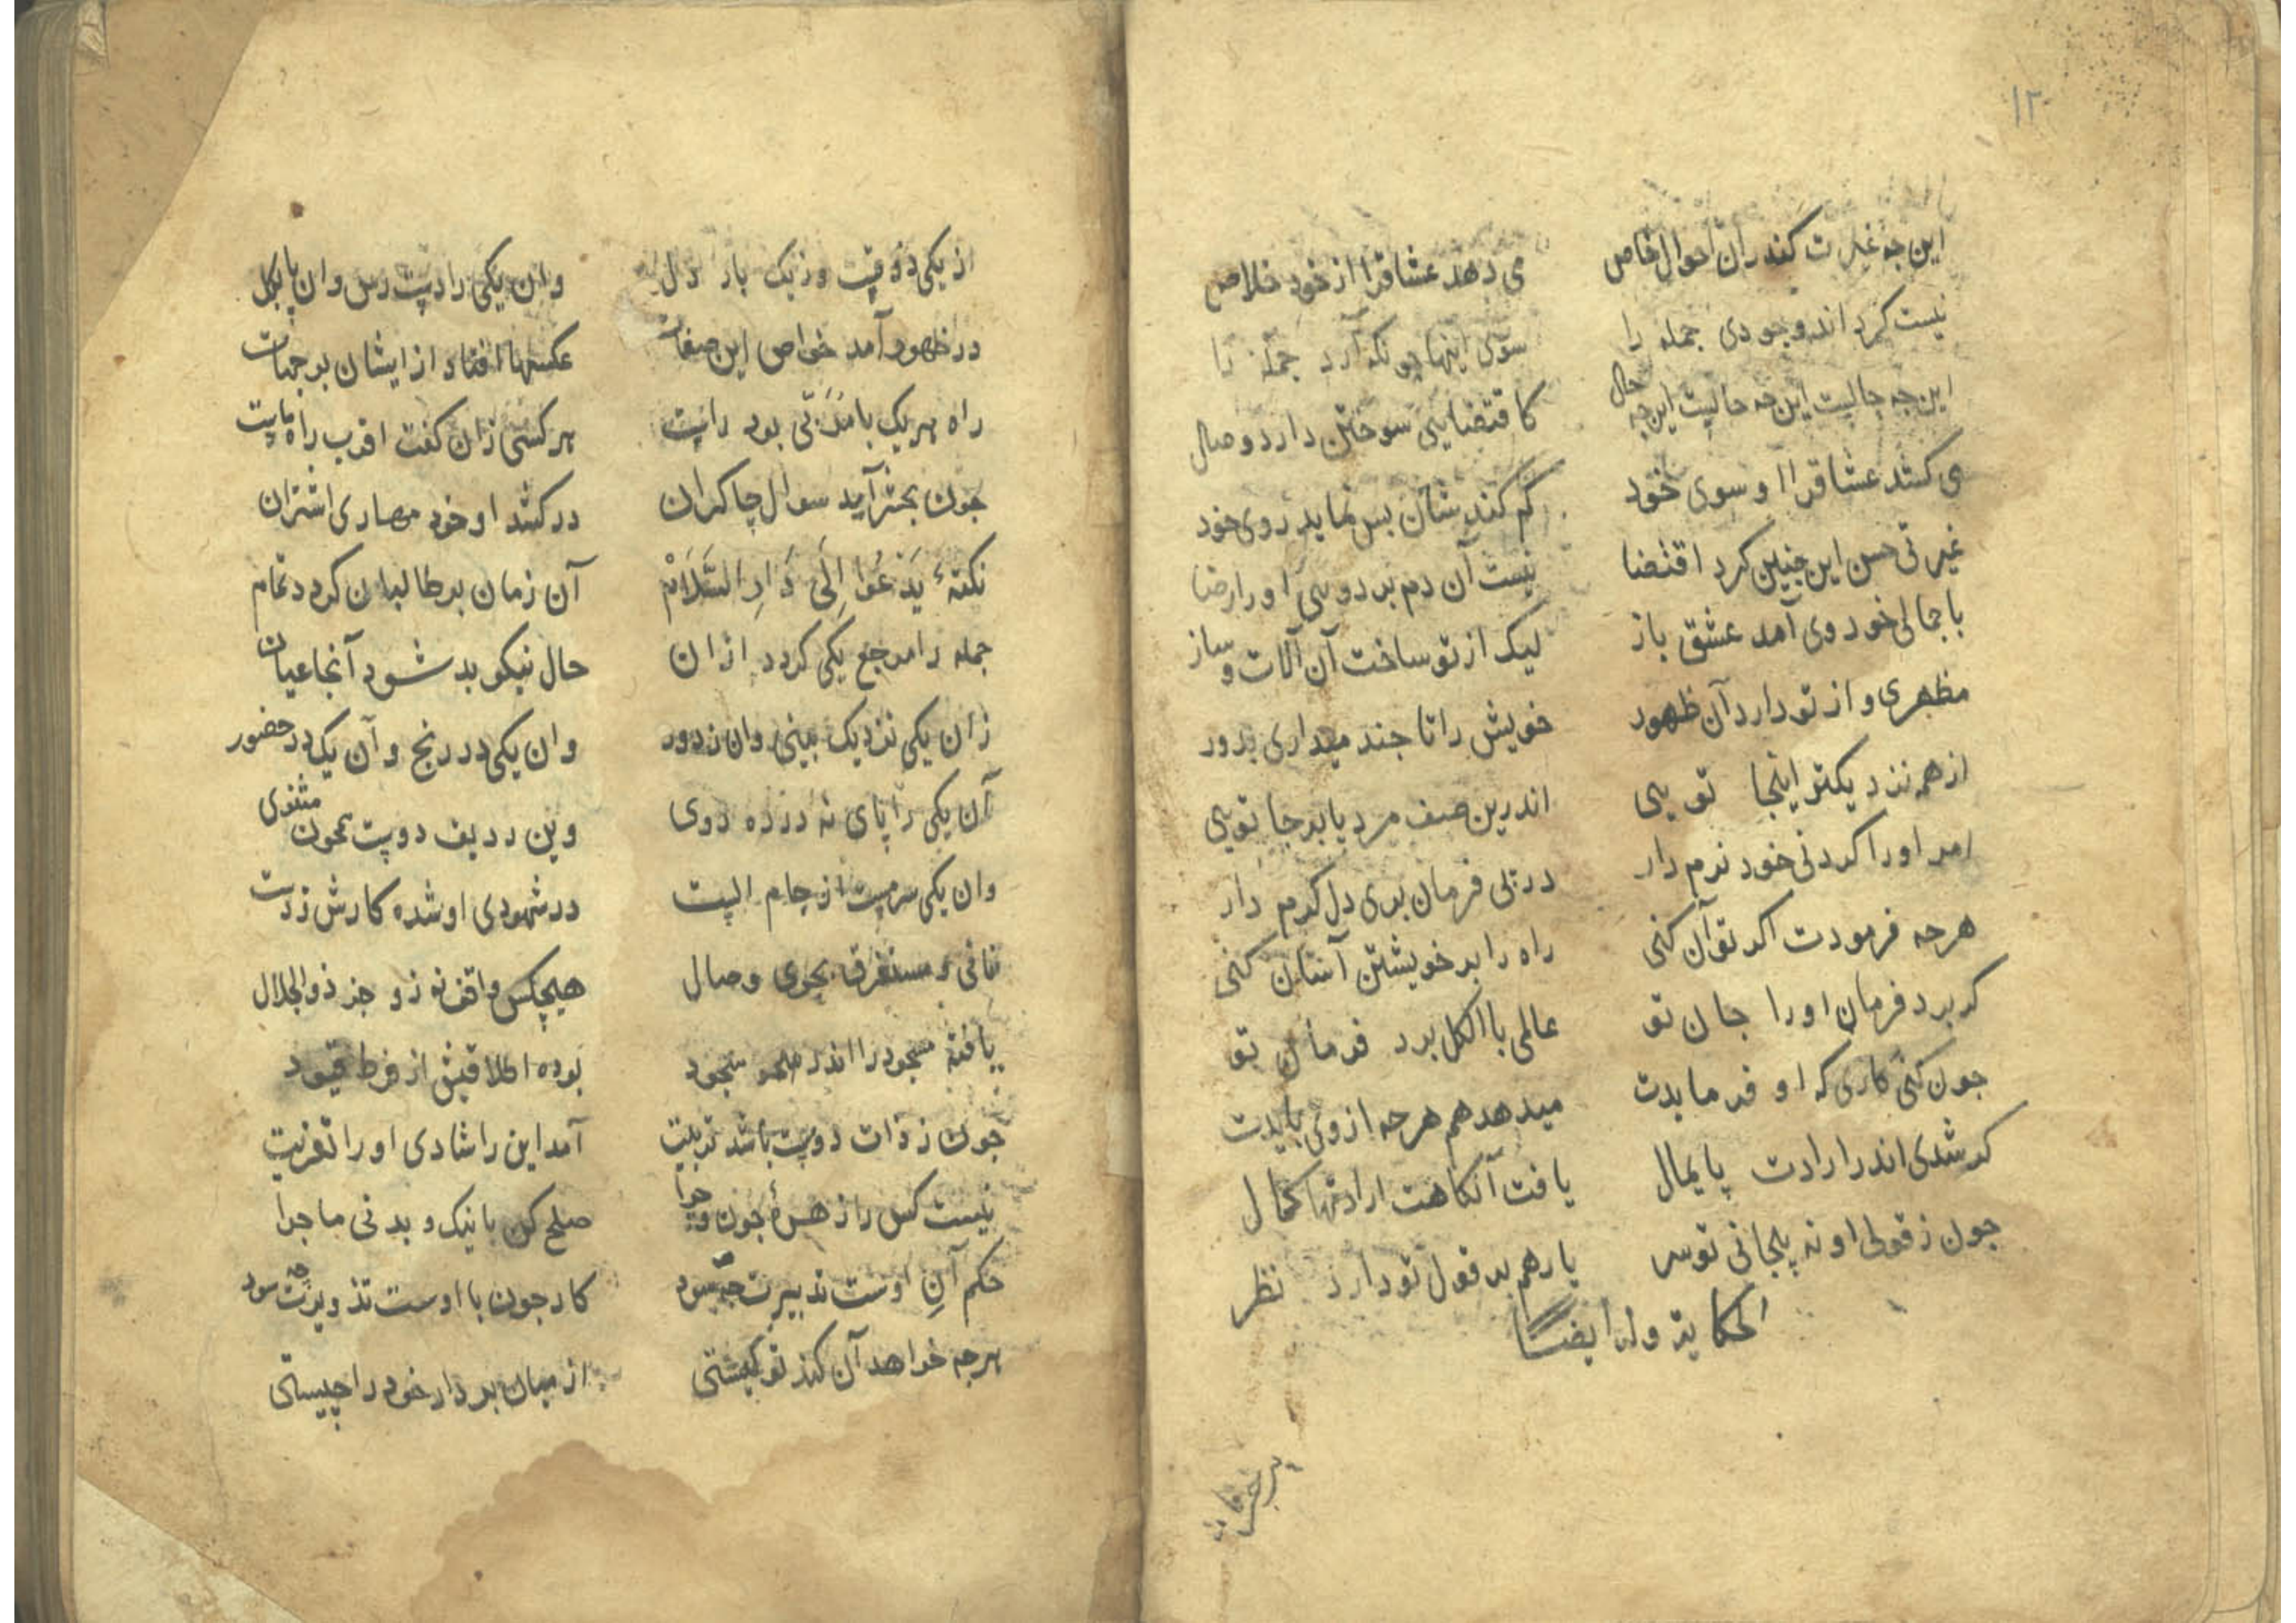 ۱۲
این چه غیرت کند ران احوال خاص می دهد عشاقرا از خود خلاص
نیست کرد اندر وجودی جمله را سوی اینها چونکه آرد جمله تا
این جه حالیت این جه حالیت این جه حال کاقتضایی سوختن دارد وصال
می کشد عشاقرا او سوی خود کم کند شان بس نماید روی خود
غیرتی حسن این جنین کرد اقتضا نیست آن دم بر دویی او را رضا
با جمالی خود وی آمد عشق باز لیک از تو ساخت آن آلات و ساز
مظهری و از تو دارد آن ظهور خویش را تا جند میداری بدور
از هم نزدیکتر اینجا تویی اندرین صف مرد پا برجا تویی
امر او را کردنی خود نرم دار در پی فرمان بری دل کرم دار
هرجه فرمودت اکر تو آن کنی راه را بر خویشتن آسان کنی
کر برد فرمان او را جان تو عالمی با الکل برد فرمان تو
جون کنی کاری که او فرمایدت میدهد هم هرجه از وی بایدت
کر شدی اندر ارادت پایمال یافت آنکاهت ارادتها کمال
جون ز قولی او نه پیچانی تو سر یار هم بر قول تو دارد نظر
الحکایة وله ایضاً
از یکی ذوقیت وز یک بار دل وان یکی را دست رس وان پا بکل
در ظهور آمد خواص این صفات عکسها افتاد از ایشان بر جهات
راه هر یک با مذلتی بود راست هر کسی زان کفت اقرب راه ماست
جون بحشر آید سوال جاکران در کشد او خود مهاری اشتران
نکتهٔ یَدْعُوا اِلَی دَارِ السَّلَامْ آن زمان بر طالبان کردد تمام
جمله را مرجع یکی کردد ازان حال نیکو بد شود آنجا عیان
زان یکی نزدیک بینی وان ز دور وان یکی در رنج و آن یک در حضور
آن یکی را پای نه در ره روی وین ردیف دوست همچون مثنوی
وان یکی سرمست از جام الست در شهودی او شده کارش ز دست
فانی و مستغرق بحوی وصال هیچکس واقف نه زو جز ذوالجلال
یافته مسجود را اندر سجود بوده اطلاقیش از فرط قیود
جون ز ذات دوست باشد تربیت آمد این را شادی او را تعزیت
نیست کس را زهرهٔ جون و جرا صلح کن با نیک و بد نی ماجرا
حکم آنِ اوست تدبیرت جه سود کار جون با اوست تزویرت جه سود
هرجه خواهد آن کند تو کیستی از میان بردار خود را چیستی